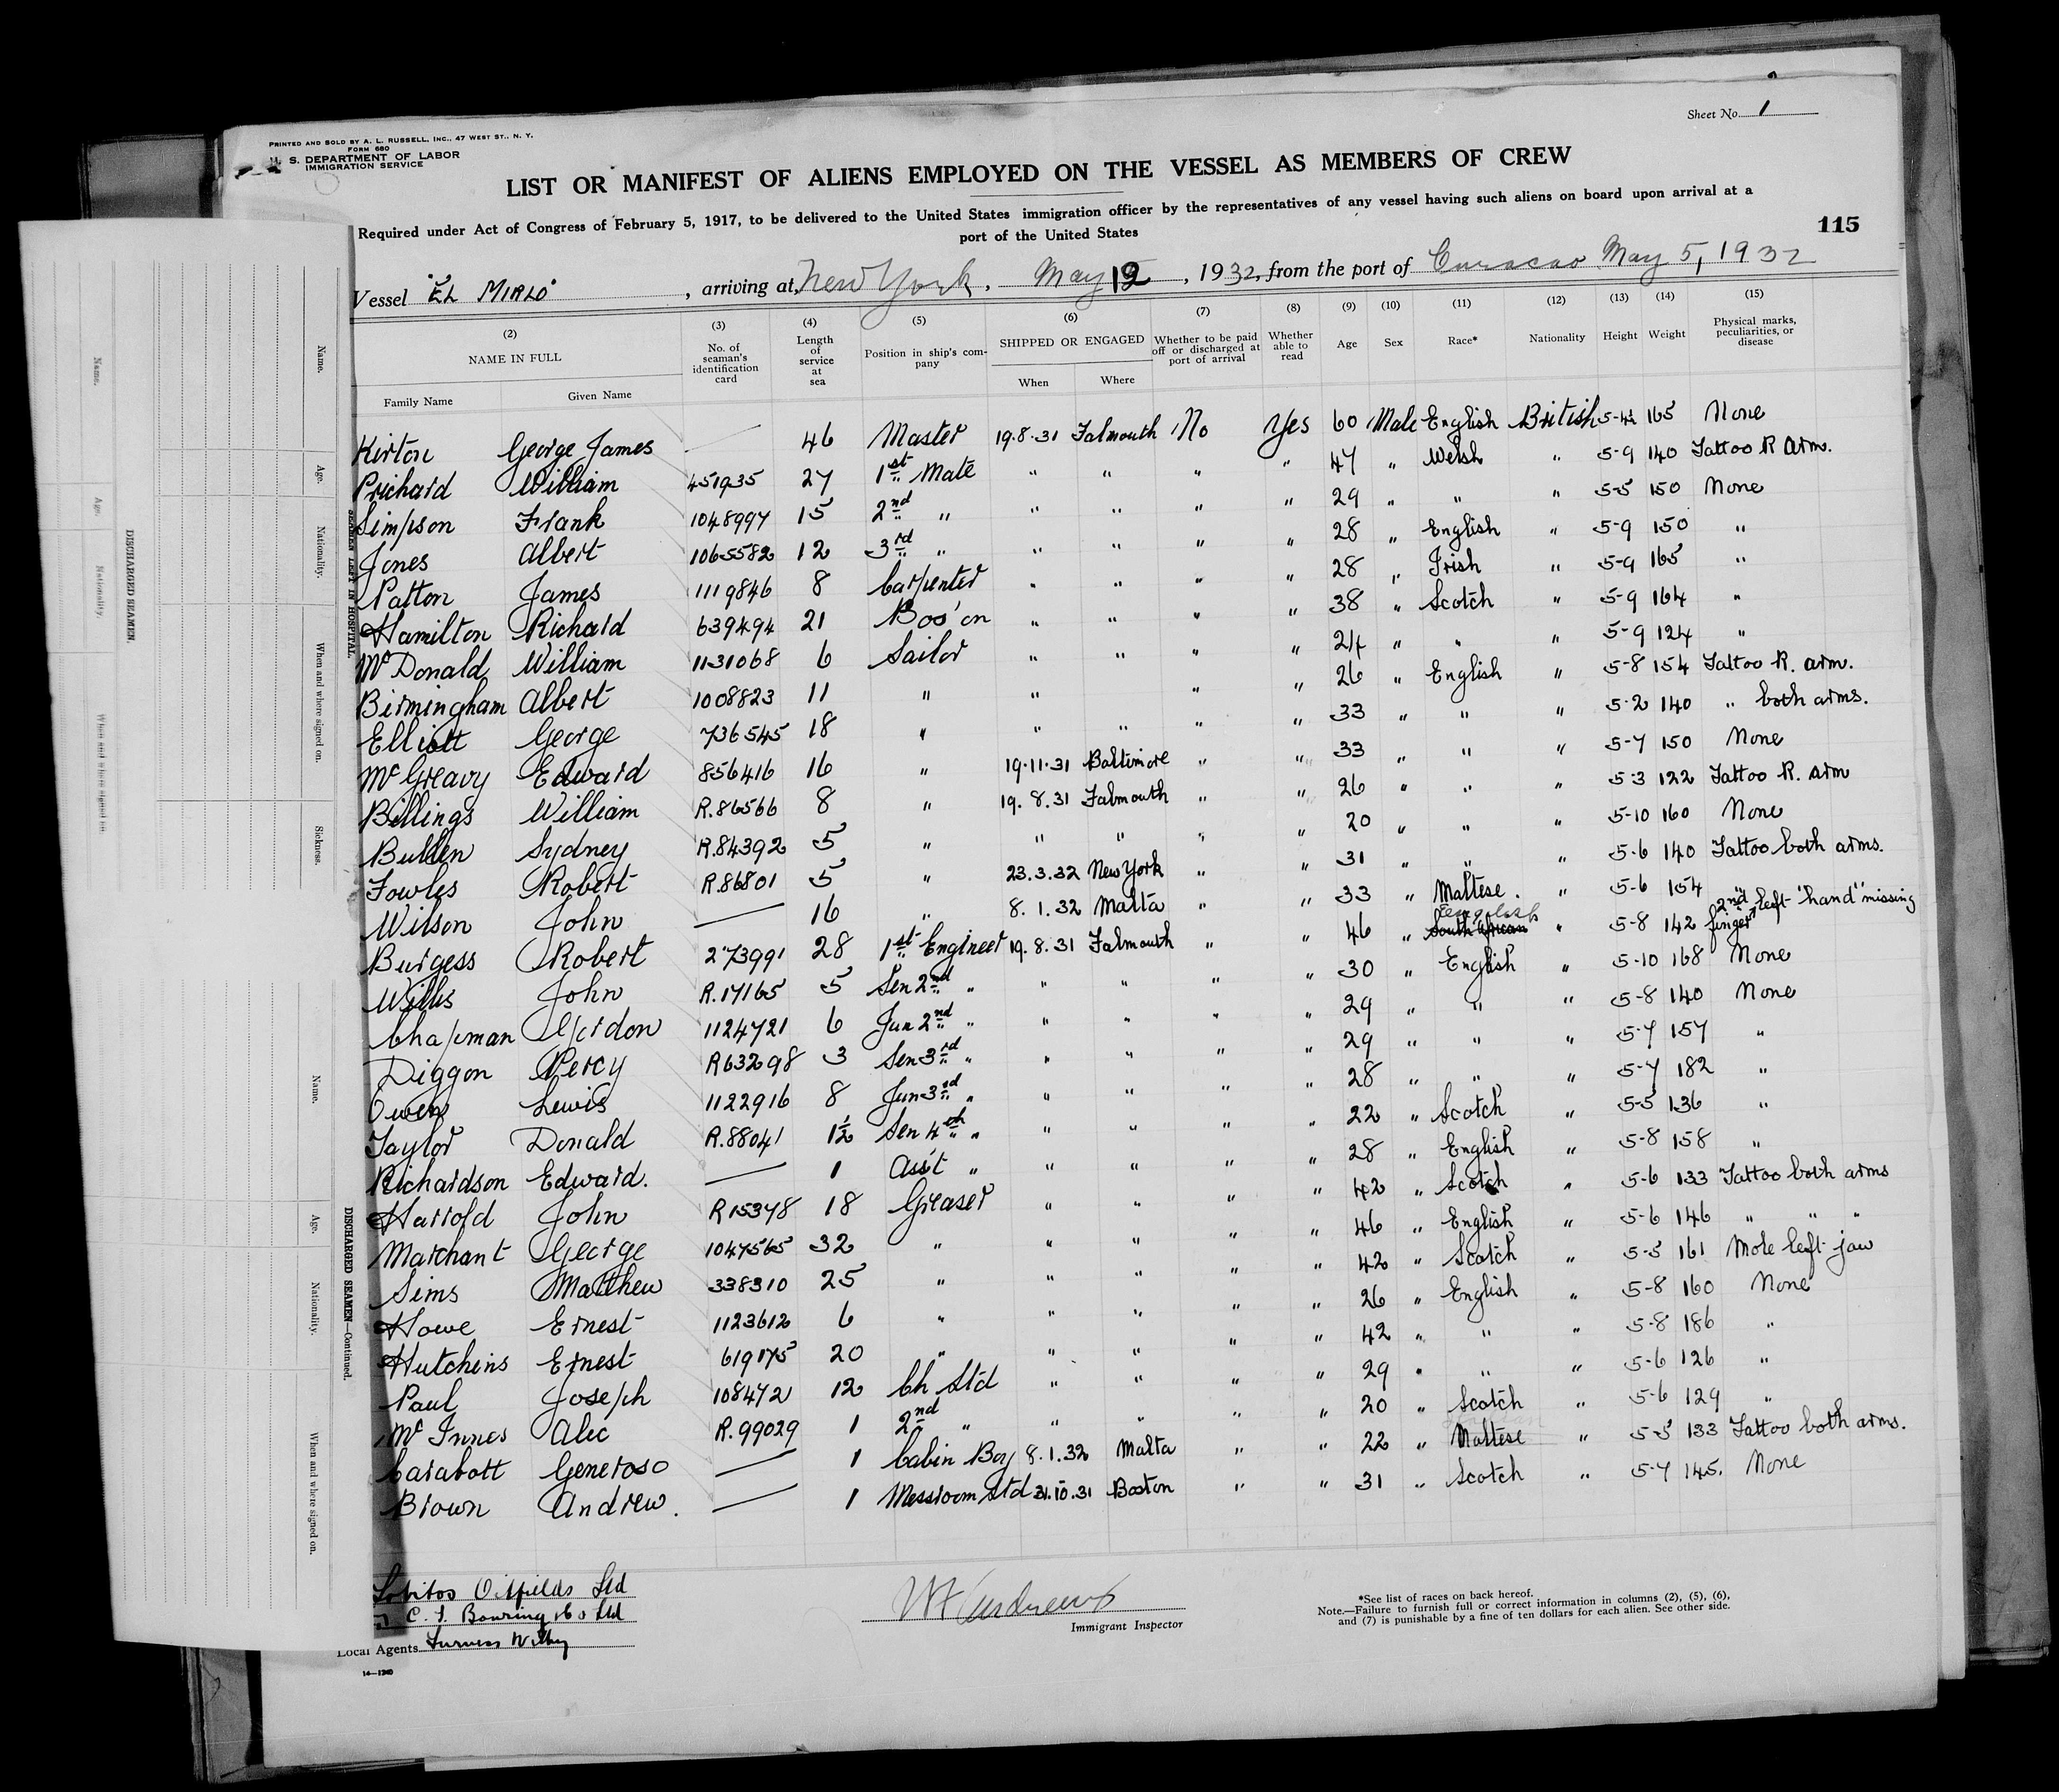 Sheet No. 1
PRINTED AND SOLD BY A. L. RUSSELL, INC., 47 WEST ST., N. Y.
FORM 680
U. S. DEPARTMENT OF LABOR
IMMIGRATION SERVICE
LIST OR MANIFEST OF ALIENS EMPLOYED ON THE VESSEL AS MEMBERS OF CREW
Required under Act of Congress of February 5, 1917, to be delivered to the United States immigration officer by the representatives of any vessel having such aliens on board upon arrival at a
port of the United States
115
Vessel "EL MIRLO", arriving at New York, May 12, 1932, from the port of Curacao May 5, 1932
(2) (3) (4) (5) (6) (7) (8) (9) (10) (11) (12) (13) (14) (15)
NAME IN FULL No. of seaman's identification card Length of service at sea Position in ship's company SHIPPED OR ENGAGED Whether to be paid off or discharged at port of arrival Whether able to read Age Sex Race* Nationality Height Weight Physical marks, peculiarities, or disease
Family Name Given Name When Where
Kirton George James — 46 Master 19.8.31 Falmouth No Yes 60 Male English British 5-4½ 165 None
Prichard William 451935 27 1st Mate " " " " 47 " Welsh " 5-9 140 Tattoo R Arm.
Simpson Frank 1048997 15 2nd " " " " " 29 " " " 5-5 150 None
Jones Albert 1065582 12 3rd " " " " " 28 " English " 5-9 150 "
Patton James 1119846 8 Carpenter " " " " 28 " Irish " 5-9 165 "
Hamilton Richard 639494 21 Bos'on " " " " 38 " Scotch " 5-9 164 "
McDonald William 1131068 6 Sailor " " " " 24 " " " 5-9 124 "
Birmingham Albert 1008823 11 " " " " 26 " English " 5-8 154 Tattoo R. arm.
Elliott George 736545 18 " " " " " 33 " " " 5-2 140 " both arms.
McGreavy Edward 856416 16 " 19.11.31 Baltimore " " 33 " " " 5-7 150 None
Billings William R.86566 8 " 19.8.31 Falmouth " " 26 " " " 5-3 122 Tattoo R. arm
Bullen Sydney R.84392 5 " " " " " 20 " " " 5-10 160 None
Fowles Robert R.86801 5 " 23.3.32 New York " " 31 " " " 5-6 140 Tattoo both arms.
Wilson John — 16 " 8.1.32 Malta " " 33 " Maltese. " 5-6 154 2nd left "hand" missing
Burgess Robert 273991 28 1st Engineer 19.8.31 Falmouth " " 46 " South African English " 5-8 142 finger
Willis John R.17165 5 Sen 2nd " " " " " 30 " English " 5-10 168 None
Chapman Gordon 1124721 6 Jun 2nd " " " " " 29 " " " 5-8 140 None
Diggon Percy R63298 3 Sen 3rd " " " " " 29 " " " 5-7 157 "
Owen Lewis 1122916 8 Jun 3rd " " " " " 28 " " " 5-7 182 "
Taylor Donald R.88041 1½ Sen 4th " " " " " 22 " Scotch " 5-5 136 "
Richardson Edward. — 1 Ass't " " " " " 28 " English " 5-8 158 "
Harrold John R15378 18 Greaser " " " " 42 " Scotch " 5-6 133 Tattoo both arms
Marchant George 1047565 32 " " " " " 46 " English " 5-6 146 " " "
Sims Matthew 338310 25 " " " " " 42 " Scotch " 5-5 161 Mole left jaw
Howe Ernest 1123612 6 " " " " " 26 " English " 5-8 160 None
Hutchins Ernest 619175 20 " " " " " 42 " " " 5-8 186 "
Paul Joseph 108472 12 Ch Std " " " " 29 " " " 5-6 126 "
McInnes Alec R.99029 1 2nd " " " " " 20 " Scotch " 5-6 129 "
Carabott Generoso — 1 Cabin Boy 8.1.32 Malta " " 22 " Maltese " 5-5 133 Tattoo both arms.
Brown Andrew. — 1 Messroom Std 31.10.31 Boston " " 31 " Scotch " 5-7 145. None
Lobitos Oilfields Ltd
C. T. Bowring & Co Ltd
Local Agents Furness Withy
14—1240
Immigrant Inspector
*See list of races on back hereof.
Note.—Failure to furnish full or correct information in columns (2), (5), (6),
and (7) is punishable by a fine of ten dollars for each alien. See other side.
SEAMEN LEFT IN HOSPITAL.
Name.
Age.
Nationality.
When and where signed on.
Sickness.
DISCHARGED SEAMEN—Continued.
Name.
Age.
Nationality.
When and where signed on.
DISCHARGED SEAMEN.
Name.
Age.
Nationality.
When and where signed on.